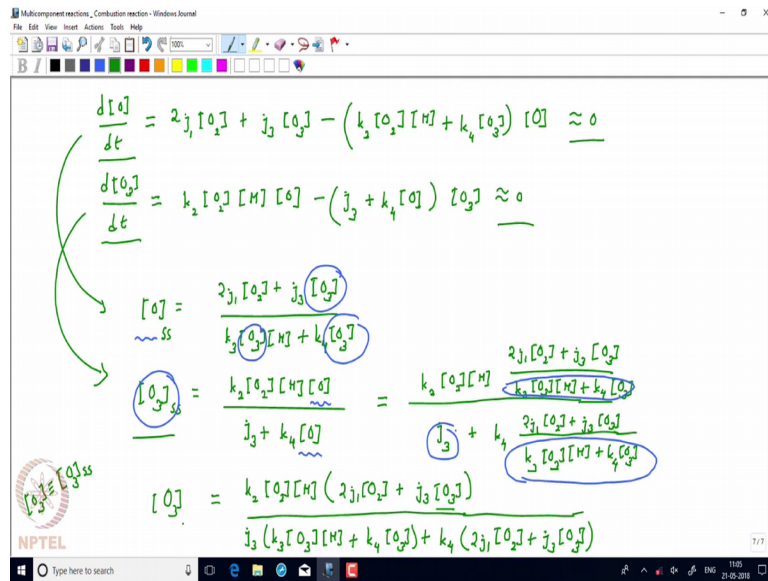 Multicomponent reactions _ Combustion reaction - Windows Journal
File Edit View Insert Actions Tools Help
100%
B I
d[O]/dt = 2j₁[O₂] + j₃[O₃] - (k₂[O₂][M] + k₄[O₃]) [O] ≈ 0
d[O₃]/dt = k₂[O₂][M][O] - (j₃ + k₄[O]) [O₃] ≈ 0
[O]ss = (2j₁[O₂] + j₃[O₃]) / (k₃[O₃][M] + k₄[O₃])
[O₃]ss = (k₂[O₂][M][O]) / (j₃ + k₄[O]) = (k₂[O₂][M] (2j₁[O₂] + j₃[O₃]) / (k₃[O₃][M] + k₄[O₃])) / (j₃ + k₄ (2j₁[O₂] + j₃[O₃]) / (k₃[O₃][M] + k₄[O₃]))
[O₃] ≡ [O₃]ss
[O₃] = (k₂[O₂][M] (2j₁[O₂] + j₃[O₃])) / (j₃(k₃[O₃][M] + k₄[O₃]) + k₄(2j₁[O₂] + j₃[O₃]))
NPTEL
7/7
Type here to search
ENG
11:05
21-05-2018